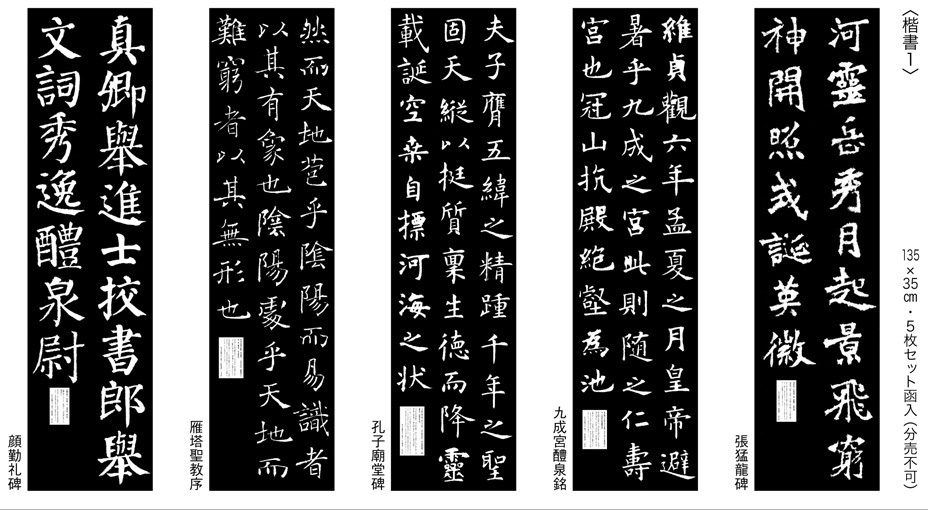 〈楷書1〉
135×35㎝・5枚セット函入(分売不可)
河靈岳秀月起景飛窮
神開照或誕英徽
張猛龍碑
維貞觀六年孟夏之月皇帝避
暑乎九成之宮此則随之仁壽
宮也冠山抗殿絶壑為池
九成宮醴泉銘
夫子膺五緯之精踵千年之聖
固天縦以挺質稟生德而降靈
載誕空桒自摽河海之状
孔子廟堂碑
然而天地苞乎陰陽而易識者
以其有象也陰陽處乎天地而
難窮者以其無形也
雁塔聖教序
真卿舉進士挍書郎舉
文詞秀逸醴泉尉
顔勤礼碑